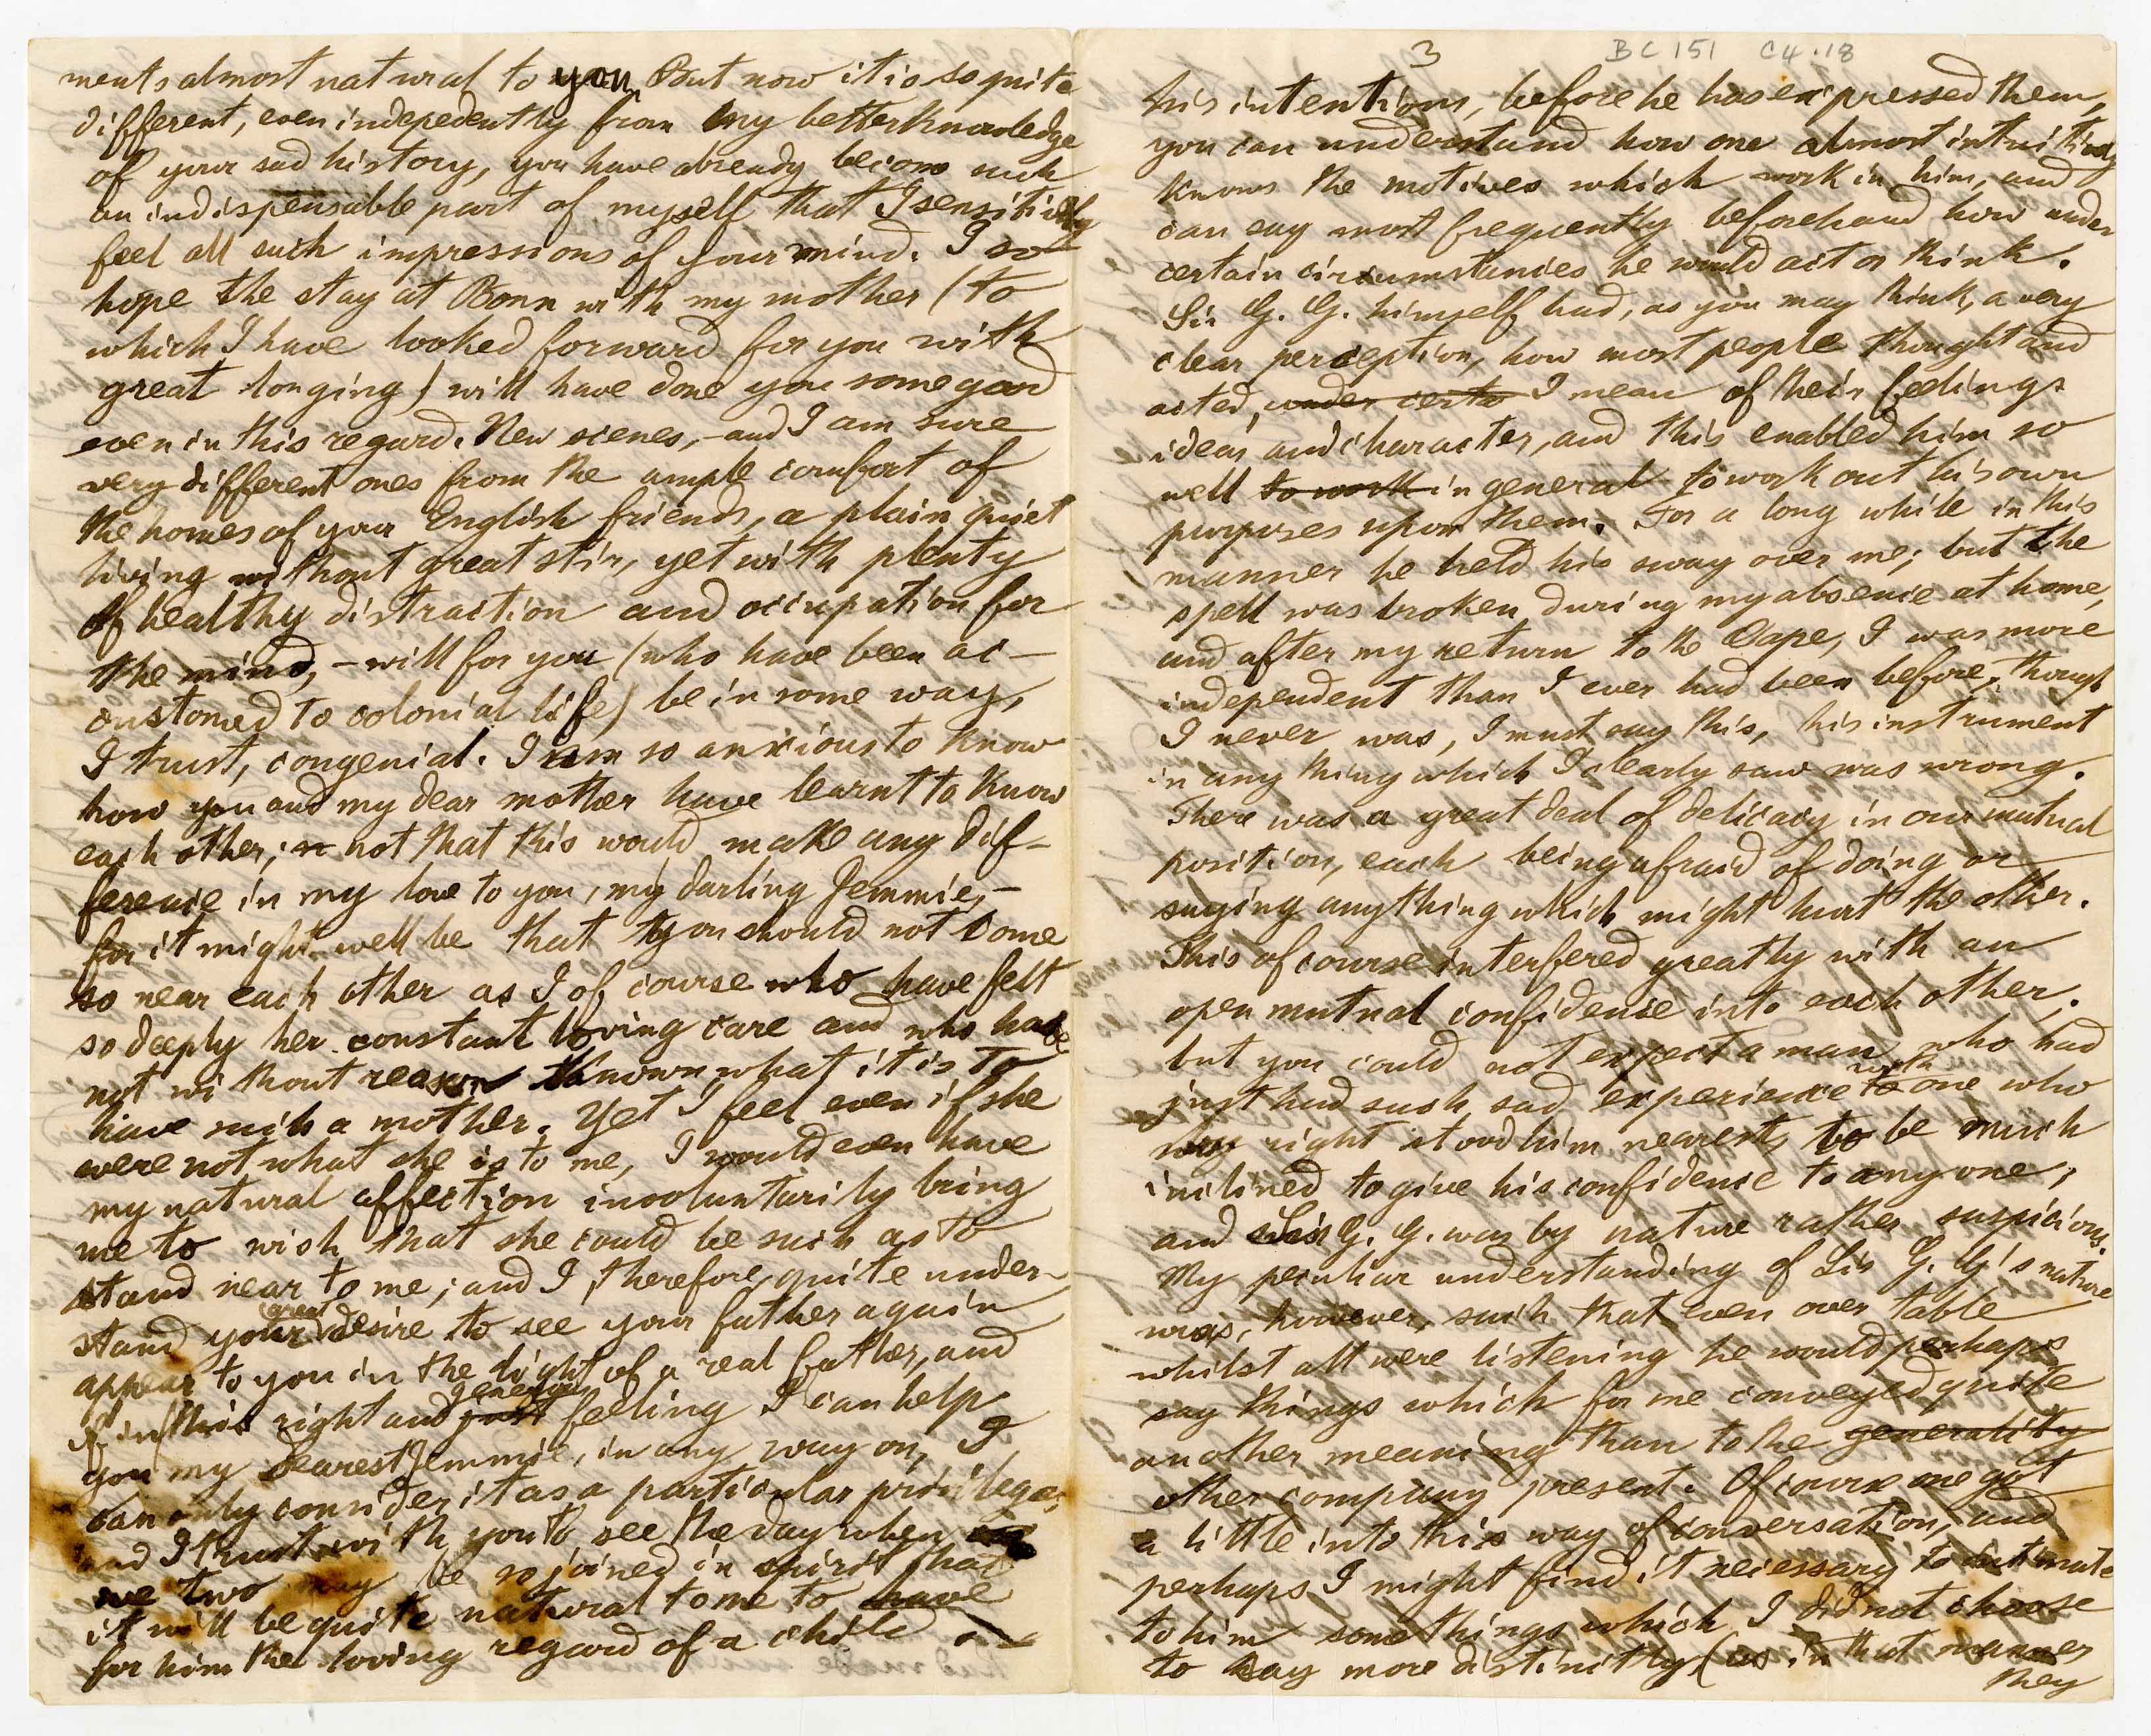 ments almost natural to you. But now it is so quite
different, even indepedently from my better knowledge
of your sad history, you have already become such
an indispensable part of myself that I sensitively
feel all such impressions of your mind. I so
hope the stay at Bonn with my mother (to
which I have looked forward for you with
great longing) will have done you some good
even in this regard. New scenes, - and I am sure
very different ones from the ample comfort of
the homes of your English friends, a plain quiet
living without great stir, yet with plenty
of healthy distraction and occupation for
the mind, - will for you (who have been ac-
customed to colonial life) be in some way,
I trust, congenial. I am so anxious to know
how you and my dear mother have learnt to know
each other; not that this would make any dif-
ference in my love to you, my darling Jemmie, -
for it might well be that you should not come
so near each other as I of course who have felt
so deeply her constant loving care and who have
not without reason known what it is to
have such a mother. Yet I feel even if she
were not what she is to me, I would even have
my natural affection involuntarily bring
me to wish that she could be such as to
stand near to me; and I, therefore, quite under-
stand your great desire to see your father again
appear to you in the light of a real father, and
if in this right and just general feeling I can help
you my dearest Jemmie, in any way on, I
can only consider it as a particular privilege,
and I trust with you to see the day when
we two may be so joined in spirit that
it will be quite natural to me to have
for him the loving regard of a child
3 BC 151 C4.18
his intentions, before he has expressed them,
you can understand how one almost intuitively
knows the motives which work in him, and
can say most frequently beforehand how under
certain circumstances he would act or think.
Sir G. G. himself had, as you may think, a very
clear perception, how most people thought and
acted, under certa I mean of their feelings
ideas and character, and this enabled him so
well to work in general to work out his own
purposes upon them. For a long while in this
manner he held his sway over me; but the
spell was broken during my absence at home,
and after my return to the Cape, I was more
independent than I ever had been before, though
I never was, I must say this, his instrument
in any thing which I clearly saw was wrong.
There was a great deal of delicacy in our mutual
position, each being afraid of doing or
saying anything which might hurt the other.
This of course interfered greatly with an
open mutual confidence into each other;
but you could not expect a man who had
just had such sad experience to with one who
by right stood him nearest, to be much
inclined to give his confidence to any one;
and Sir G. G. was by nature rather suspicious.
My peculiar understanding of Sir G. G's nature
was, however, such that even over table
whilst all were listening he would perhaps
say things which for me conveyed quite
another meaning than to the generality
other company present. Of course one got
a little into this way of conversation, and
perhaps I might find it necessary to intimate
to him some things which I did not choose
to say more distinctly (as in that manner
they